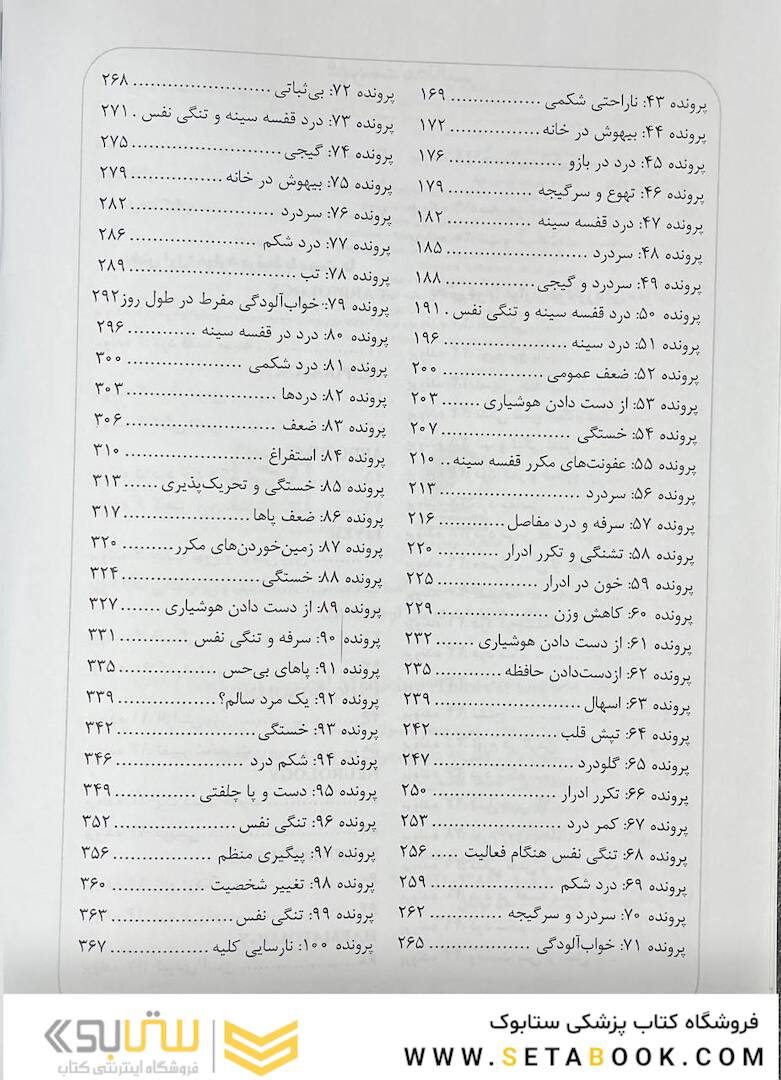 پرونده ۴۳: ناراحتی شکمی ................ ۱۶۹
پرونده ۴۴: بیهوش در خانه ................ ۱۷۲
پرونده ۴۵: درد در بازو .................... ۱۷۶
پرونده ۴۶: تهوع و سرگیجه ............... ۱۷۹
پرونده ۴۷: درد قفسه سینه ............... ۱۸۲
پرونده ۴۸: سردرد ......................... ۱۸۵
پرونده ۴۹: سردرد و گیجی ................ ۱۸۸
پرونده ۵۰: درد قفسه سینه و تنگی نفس . ۱۹۱
پرونده ۵۱: درد سینه ...................... ۱۹۶
پرونده ۵۲: ضعف عمومی .................. ۲۰۰
پرونده ۵۳: از دست دادن هوشیاری ....... ۲۰۳
پرونده ۵۴: خستگی ....................... ۲۰۷
پرونده ۵۵: عفونت‌های مکرر قفسه سینه .. ۲۱۰
پرونده ۵۶: سردرد ......................... ۲۱۳
پرونده ۵۷: سرفه و درد مفاصل ............ ۲۱۶
پرونده ۵۸: تشنگی و تکرر ادرار ........... ۲۲۰
پرونده ۵۹: خون در ادرار .................. ۲۲۵
پرونده ۶۰: کاهش وزن .................... ۲۲۹
پرونده ۶۱: از دست دادن هوشیاری ....... ۲۳۲
پرونده ۶۲: ازدست‌دادن حافظه ............ ۲۳۵
پرونده ۶۳: اسهال .......................... ۲۳۹
پرونده ۶۴: تپش قلب ...................... ۲۴۲
پرونده ۶۵: گلودرد ......................... ۲۴۷
پرونده ۶۶: تکرر ادرار ...................... ۲۵۰
پرونده ۶۷: کمر درد ........................ ۲۵۳
پرونده ۶۸: تنگی نفس هنگام فعالیت ..... ۲۵۶
پرونده ۶۹: درد شکم ...................... ۲۵۹
پرونده ۷۰: سردرد و سرگیجه ............. ۲۶۲
پرونده ۷۱: خواب‌آلودگی .................. ۲۶۵
پرونده ۷۲: بی‌ثباتی ........................ ۲۶۸
پرونده ۷۳: درد قفسه سینه و تنگی نفس . ۲۷۱
پرونده ۷۴: گیجی .......................... ۲۷۵
پرونده ۷۵: بیهوش در خانه ................ ۲۷۹
پرونده ۷۶: سردرد ......................... ۲۸۲
پرونده ۷۷: درد شکم ...................... ۲۸۶
پرونده ۷۸: تب ............................. ۲۸۹
پرونده ۷۹: خواب‌آلودگی مفرط در طول روز ۲۹۲
پرونده ۸۰: درد در قفسه سینه ............ ۲۹۶
پرونده ۸۱: درد شکمی .................... ۳۰۰
پرونده ۸۲: دردها .......................... ۳۰۳
پرونده ۸۳: ضعف .......................... ۳۰۶
پرونده ۸۴: استفراغ ........................ ۳۱۰
پرونده ۸۵: خستگی و تحریک‌پذیری ...... ۳۱۳
پرونده ۸۶: ضعف پاها ...................... ۳۱۷
پرونده ۸۷: زمین‌خوردن‌های مکرر ......... ۳۲۰
پرونده ۸۸: خستگی ........................ ۳۲۴
پرونده ۸۹: از دست دادن هوشیاری ....... ۳۲۷
پرونده ۹۰: سرفه و تنگی نفس ............ ۳۳۱
پرونده ۹۱: پاهای بی‌حس ................. ۳۳۵
پرونده ۹۲: یک مرد سالم؟ ................. ۳۳۹
پرونده ۹۳: خستگی ........................ ۳۴۲
پرونده ۹۴: شکم درد ...................... ۳۴۶
پرونده ۹۵: دست و پا چلفتی .............. ۳۴۹
پرونده ۹۶: تنگی نفس ..................... ۳۵۲
پرونده ۹۷: پیگیری منظم .................. ۳۵۶
پرونده ۹۸: تغییر شخصیت ................ ۳۶۰
پرونده ۹۹: تنگی نفس ..................... ۳۶۳
پرونده ۱۰۰: نارسایی کلیه ................. ۳۶۷
فروشگاه کتاب پزشکی ستابوک
WWW.SETABOOK.COM
ستابوک
فروشگاه اینترنتی کتاب